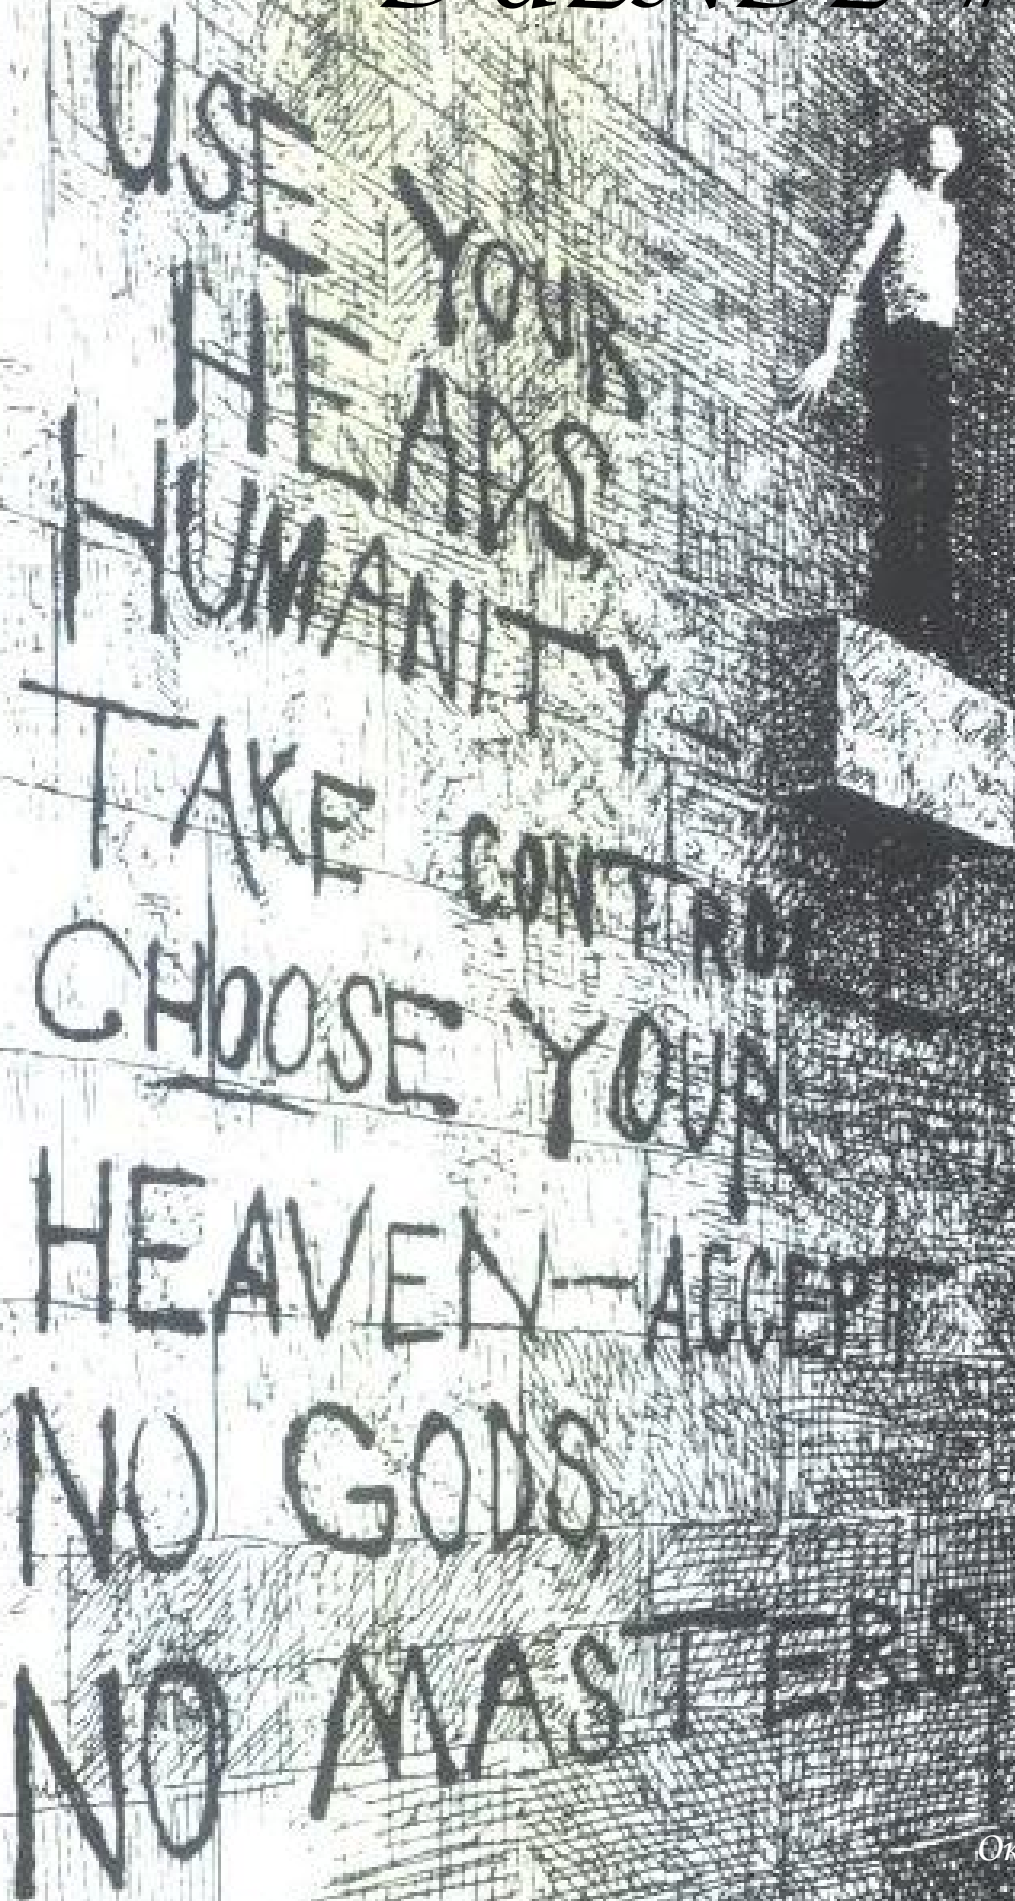 USE YOUR
HEADS,
HUMANITY—
TAKE CONTROL
CHOOSE YOUR
HEAVEN—ACCEPT
NO GODS,
NO MASTERS